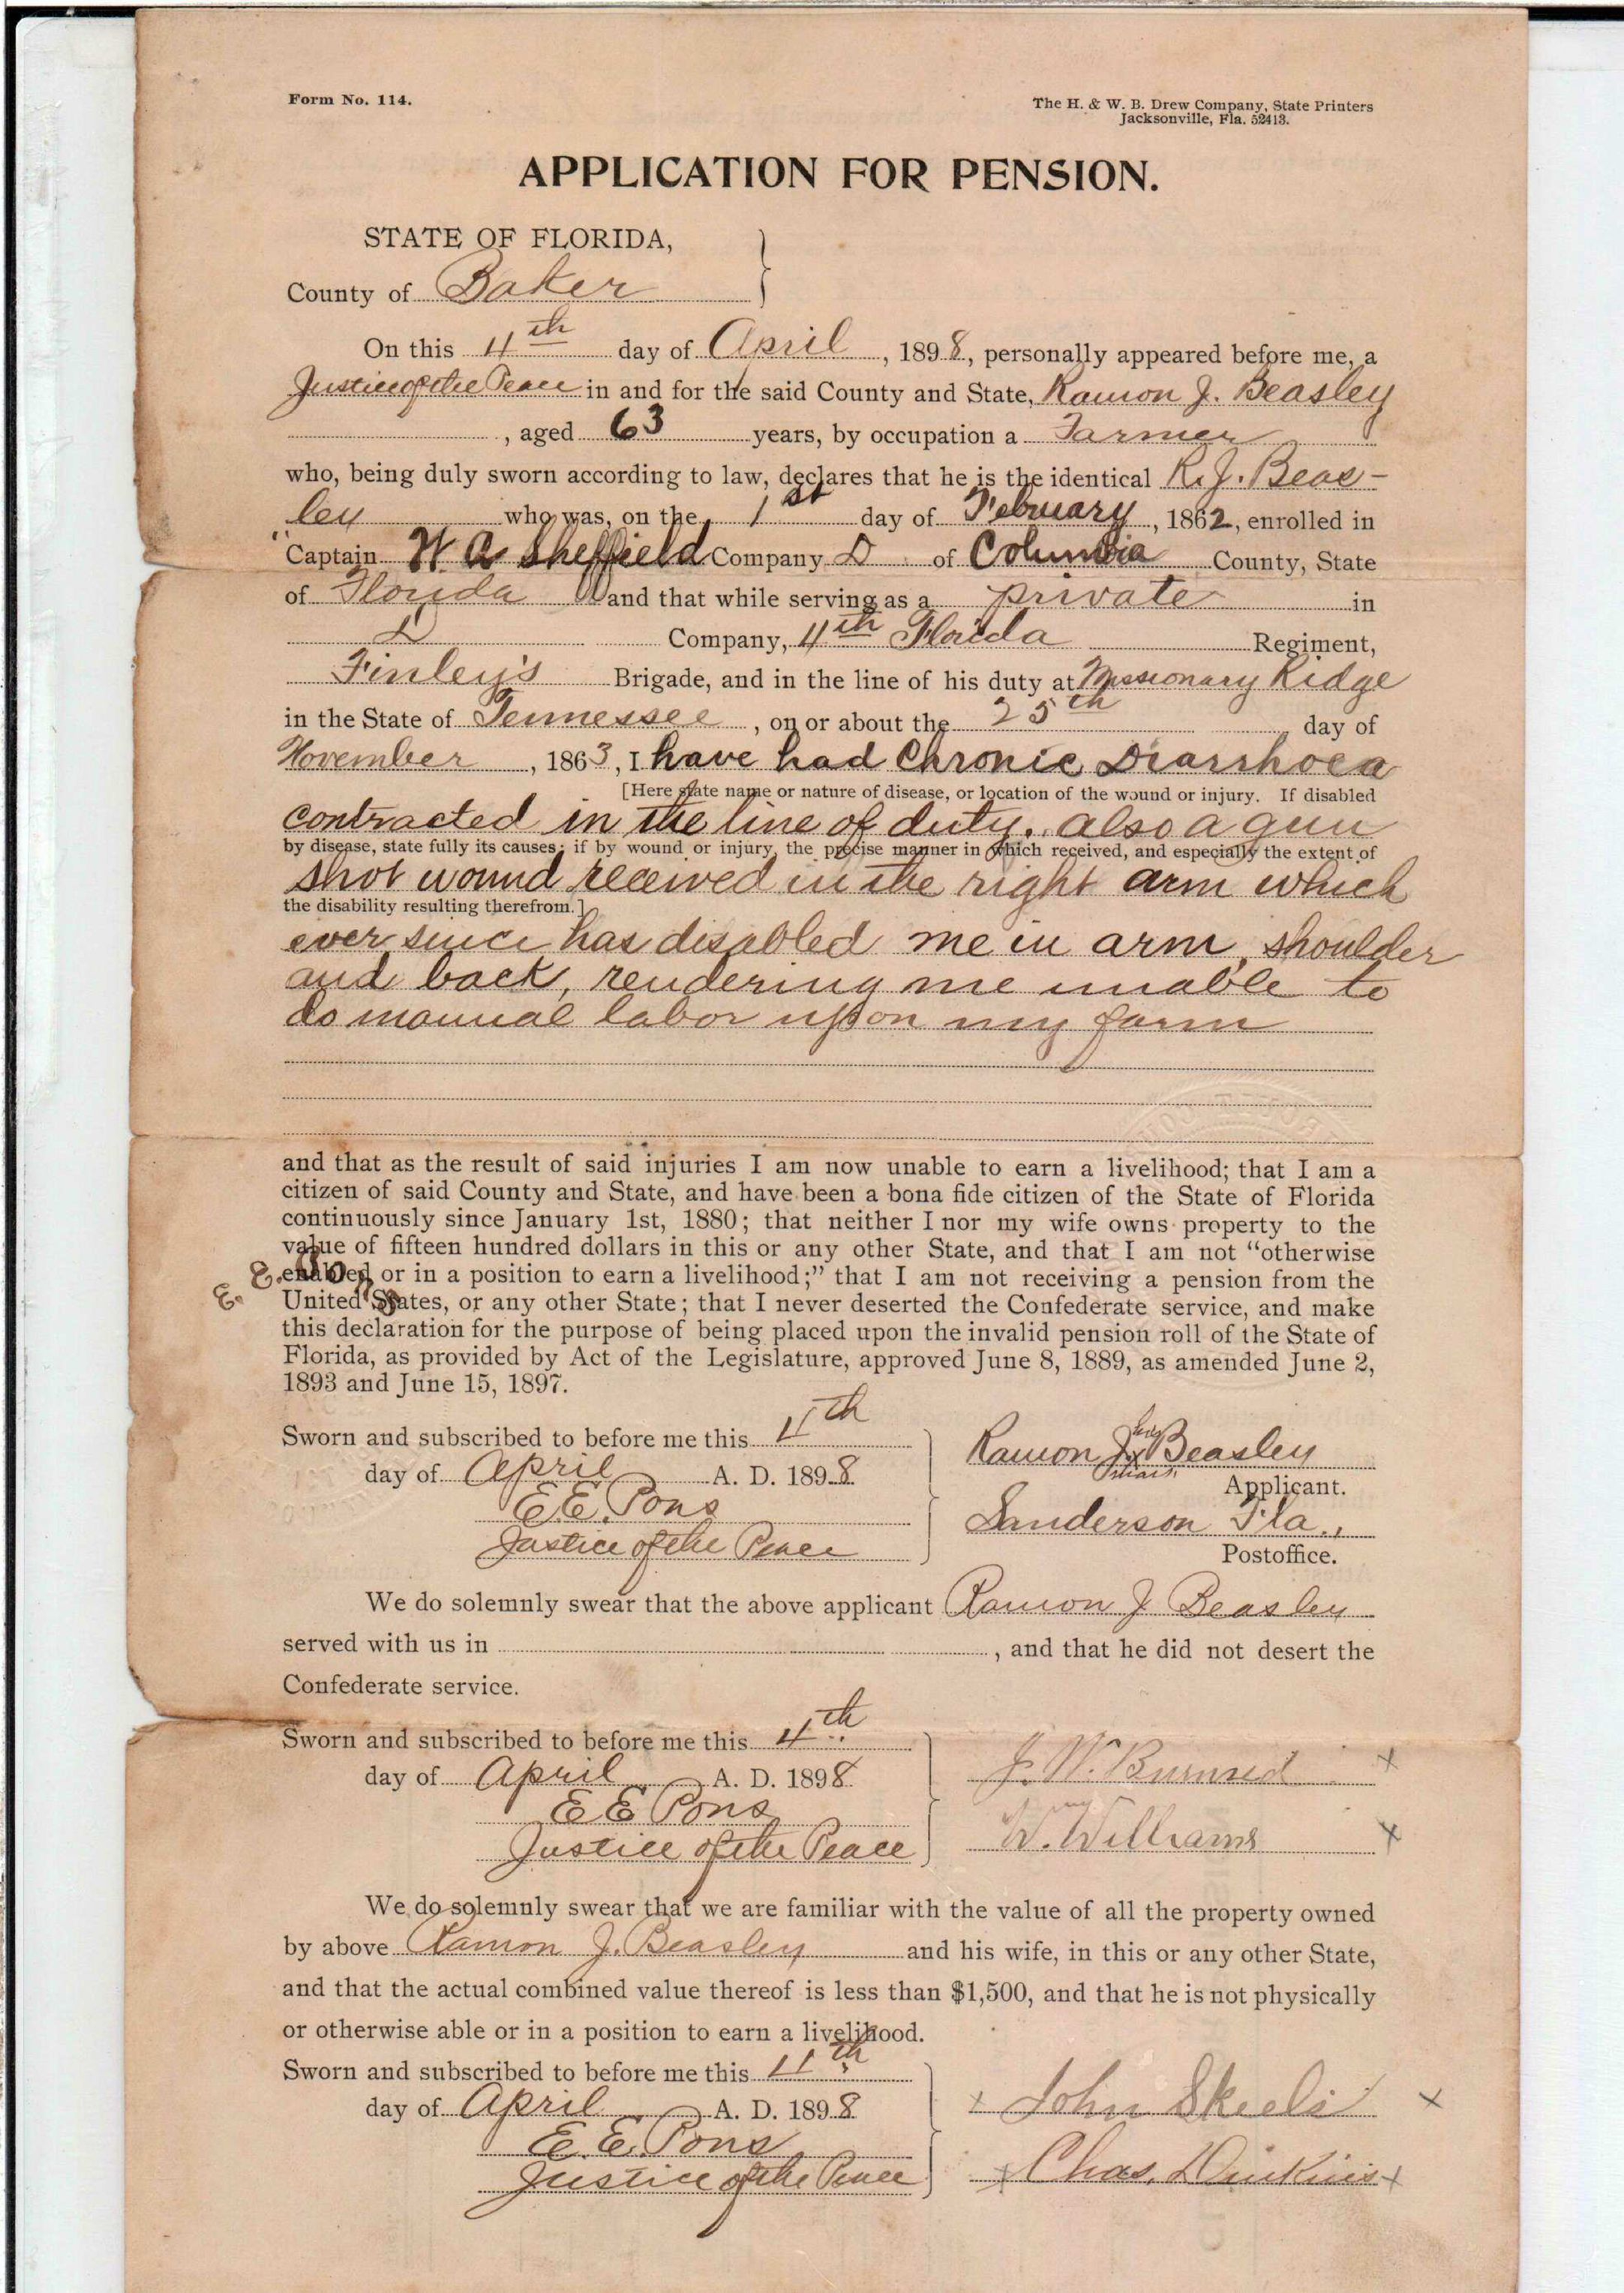 Form No. 114.
The H. & W. B. Drew Company, State Printers
Jacksonville, Fla. 52413.
APPLICATION FOR PENSION.
STATE OF FLORIDA,
County of Baker
On this 4th day of April, 1898, personally appeared before me, a
Justice of the Peace in and for the said County and State, Ramon J. Beasley
, aged 63 years, by occupation a Farmer
who, being duly sworn according to law, declares that he is the identical R. J. Beas-
ley who was, on the 1st day of February, 1862, enrolled in
Captain W A Sheffield Company D of Columbia County, State
of Florida and that while serving as a private in
D Company, 4th Florida Regiment,
Finley's Brigade, and in the line of his duty at Missionary Ridge
in the State of Tennessee, on or about the 25th day of
November, 1863, I have had Chronic Diarrhoea
[Here state name or nature of disease, or location of the wound or injury. If disabled
contracted in the line of duty. also a gun
by disease, state fully its causes; if by wound or injury, the precise manner in which received, and especially the extent of
shot wound received in the right arm which
the disability resulting therefrom.]
ever since has disabled me in arm, shoulder
and back, rendering me unable to
do manual labor upon my farm
and that as the result of said injuries I am now unable to earn a livelihood; that I am a
citizen of said County and State, and have been a bona fide citizen of the State of Florida
continuously since January 1st, 1880; that neither I nor my wife owns property to the
value of fifteen hundred dollars in this or any other State, and that I am not "otherwise
E. E. Pons
enabled or in a position to earn a livelihood;" that I am not receiving a pension from the
United States, or any other State; that I never deserted the Confederate service, and make
this declaration for the purpose of being placed upon the invalid pension roll of the State of
Florida, as provided by Act of the Legislature, approved June 8, 1889, as amended June 2,
1893 and June 15, 1897.
Sworn and subscribed to before me this 4th
day of April A. D. 1898
E. E. Pons
Justice of the Peace
his
Ramon J. x Beasley
mark
Applicant.
Sanderson Fla.,
Postoffice.
We do solemnly swear that the above applicant Ramon J Beasley
served with us in , and that he did not desert the
Confederate service.
Sworn and subscribed to before me this 4th
day of April A. D. 1898
E E Pons
Justice of the Peace
J. W. Burnsed x
W. Williams x
We do solemnly swear that we are familiar with the value of all the property owned
by above Ramon J. Beasley and his wife, in this or any other State,
and that the actual combined value thereof is less than $1,500, and that he is not physically
or otherwise able or in a position to earn a livelihood.
Sworn and subscribed to before me this 4th
day of April A. D. 1898
E. E. Pons
Justice of the Peace
x John Skeels x
x Chas. Dinkins x